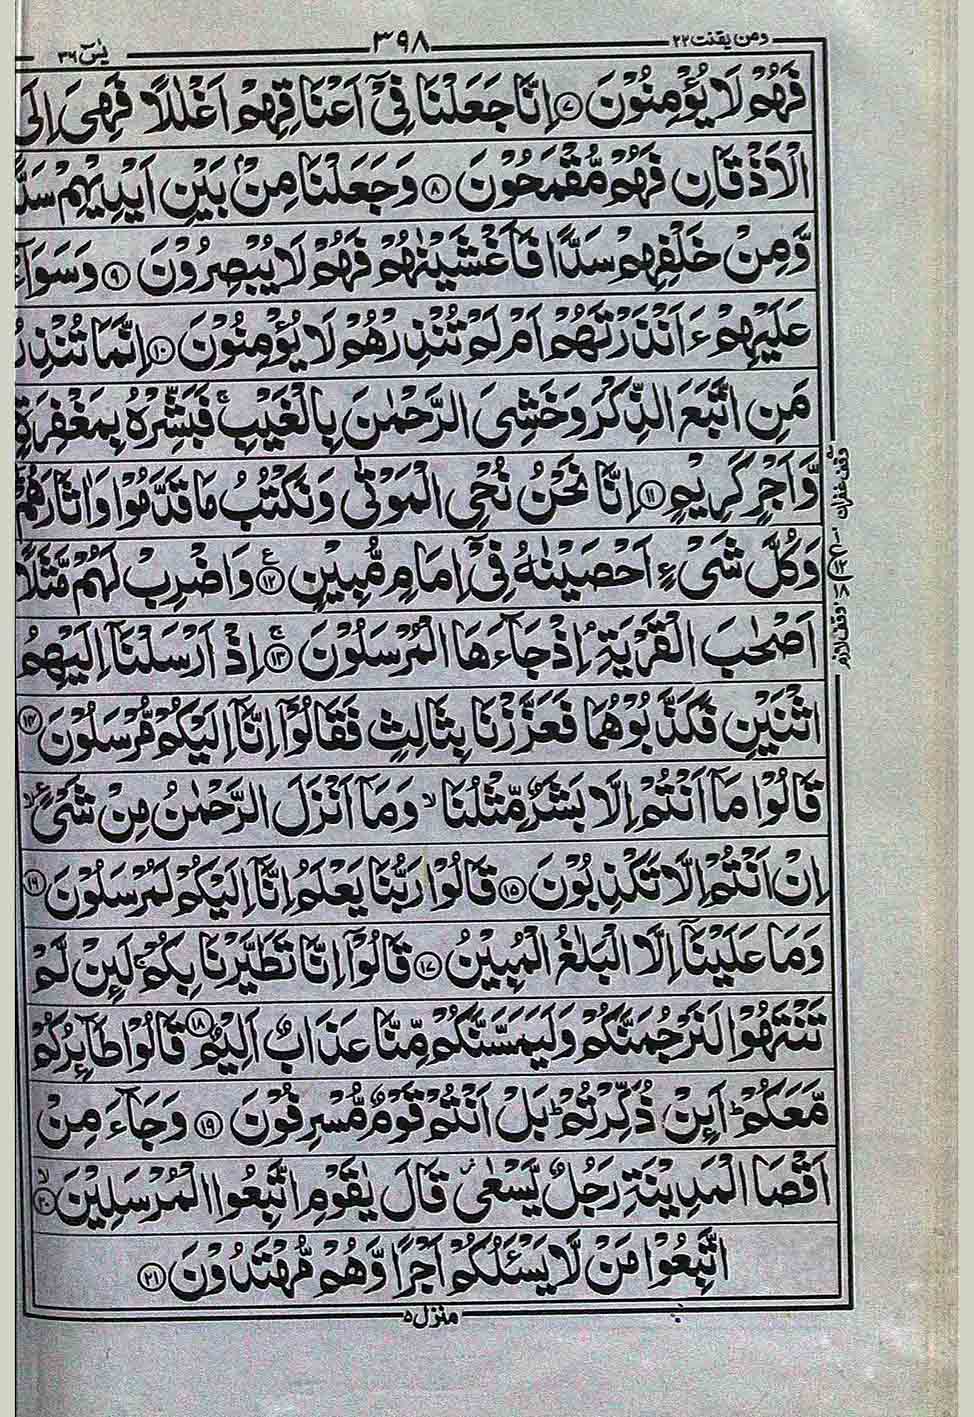 ومن یقنت ۲۲ ۳۹۸ یٰسٓ ۳۶
فَهُمْ لَا يُؤْمِنُوْنَ ۷ اِنَّا جَعَلْنَا فِيْٓ اَعْنَاقِهِمْ اَغْلٰلًا فَهِيَ اِلَى
الْاَذْقَانِ فَهُمْ مُّقْمَحُوْنَ ۸ وَجَعَلْنَا مِنْۢ بَيْنِ اَيْدِيْهِمْ سَدًّا
وَّمِنْ خَلْفِهِمْ سَدًّا فَاَغْشَيْنٰهُمْ فَهُمْ لَا يُبْصِرُوْنَ ۹ وَسَوَآءٌ
عَلَيْهِمْ ءَاَنْذَرْتَهُمْ اَمْ لَمْ تُنْذِرْهُمْ لَا يُؤْمِنُوْنَ ۱۰ اِنَّمَا تُنْذِرُ
مَنِ اتَّبَعَ الذِّكْرَ وَخَشِيَ الرَّحْمٰنَ بِالْغَيْبِ ۚ فَبَشِّرْهُ بِمَغْفِرَةٍ
وَّاَجْرٍ كَرِيْمٍ ۱۱ اِنَّا نَحْنُ نُحْيِ الْمَوْتٰى وَنَكْتُبُ مَا قَدَّمُوْا وَاٰثَارَهُمْ
وَكُلَّ شَيْءٍ اَحْصَيْنٰهُ فِيْٓ اِمَامٍ مُّبِيْنٍ ۱۲ وَاضْرِبْ لَهُمْ مَّثَلًا
اَصْحٰبَ الْقَرْيَةِ ۘ اِذْ جَآءَهَا الْمُرْسَلُوْنَ ۱۳ اِذْ اَرْسَلْنَآ اِلَيْهِمُ
اثْنَيْنِ فَكَذَّبُوْهُمَا فَعَزَّزْنَا بِثَالِثٍ فَقَالُوْٓا اِنَّآ اِلَيْكُمْ مُّرْسَلُوْنَ ۱۴
قَالُوْا مَآ اَنْتُمْ اِلَّا بَشَرٌ مِّثْلُنَا ۙ وَمَآ اَنْزَلَ الرَّحْمٰنُ مِنْ شَيْءٍ ۙ
اِنْ اَنْتُمْ اِلَّا تَكْذِبُوْنَ ۱۵ قَالُوْا رَبُّنَا يَعْلَمُ اِنَّآ اِلَيْكُمْ لَمُرْسَلُوْنَ ۱۶
وَمَا عَلَيْنَآ اِلَّا الْبَلٰغُ الْمُبِيْنُ ۱۷ قَالُوْٓا اِنَّا تَطَيَّرْنَا بِكُمْ ۚ لَئِنْ لَّمْ
تَنْتَهُوْا لَنَرْجُمَنَّكُمْ وَلَيَمَسَّنَّكُمْ مِّنَّا عَذَابٌ اَلِيْمٌ ۱۸ قَالُوْا طَآئِرُكُمْ
مَّعَكُمْ ؕ اَئِنْ ذُكِّرْتُمْ ؕ بَلْ اَنْتُمْ قَوْمٌ مُّسْرِفُوْنَ ۱۹ وَجَآءَ مِنْ
اَقْصَا الْمَدِيْنَةِ رَجُلٌ يَّسْعٰى قَالَ يٰقَوْمِ اتَّبِعُوا الْمُرْسَلِيْنَ ۲۰
اتَّبِعُوْا مَنْ لَّا يَسْـَٔلُكُمْ اَجْرًا وَّهُمْ مُّهْتَدُوْنَ ۲۱
منزل ۵
وقف غفران
۱۲
۱۸
وقف لازم